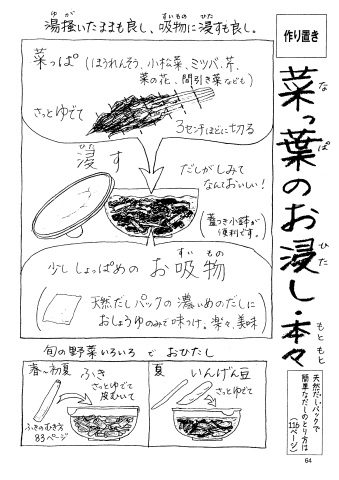 湯掻いたままも良し、吸物に浸すも良し。
ゆが
すいもの
ひた
作り置き
菜っ葉のお浸し・本々
な
ぱ
ひた
もと もと
天然だしパックで
簡単なだしのとり方は
(116ページ)
菜っぱ(ほうれんそう、小松菜、ミツバ、芹、
菜の花、間引き菜なども)
さっとゆでて
3センチほどに切る
浸す
ひた
だしがしみて
なんておいしい!
(蓋つき小鉢が
便利です。)
少ししょっぱめのお吸物
すいもの
(天然だしパックの濃いめのだしに
おしょうゆのみで味つけ。楽々、美味)
旬の野菜いろいろでおひたし
春〜初夏 ふき
さっとゆでて
皮むいて
ふきのむき方
83ページ
夏 いんげん豆
さっとゆでて
64